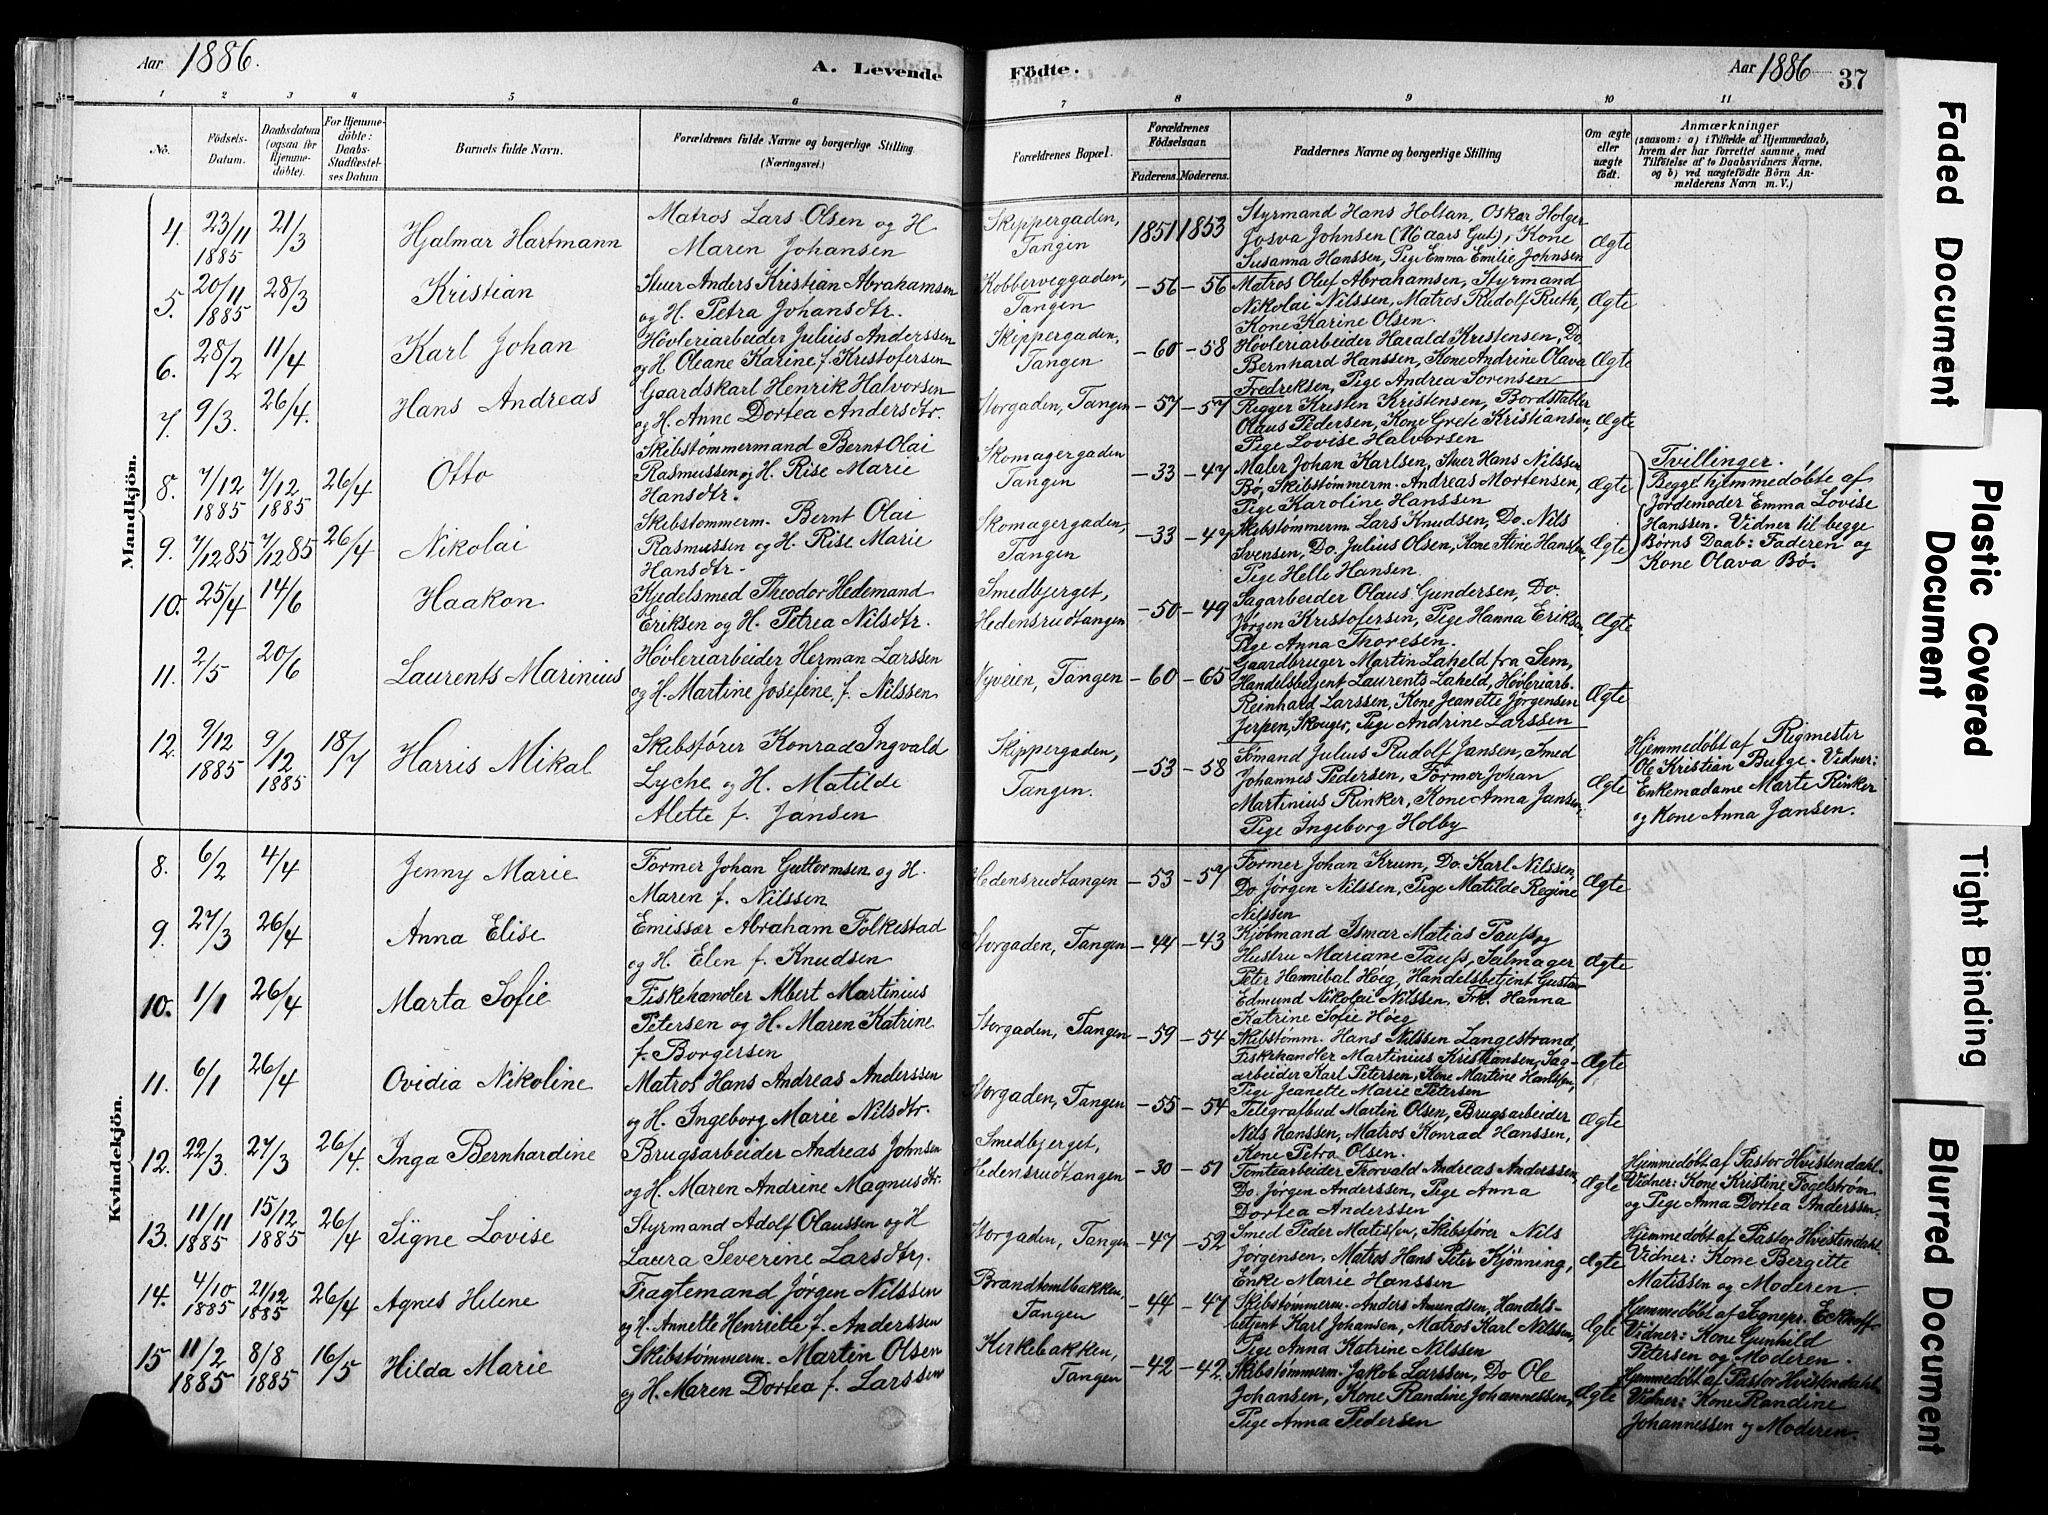 Aar 1886. A. Levende
1 2 3 4 5 6
No. Födsels-Datum. Daabsdatum (ogsaa for Hjemmedöbte). For Hjemmedöbte: Daabs-Stadfæstelses Datum Barnets fulde Navn. Forældrenes fulde Navne og borgerlige Stilling (Næringsvei.)
Mandkjön.
4. 23/11 1885 21/3 Hjalmar Hartmann Matros Lars Olsen og H
Maren Johansen
5. 20/11 1885 28/3 Kristian Stuer Anders Kristian Abrahamsen
og H. Petra Johansdtr.
6. 28/2 11/4 Karl Johan Høvleriarbeider Julius Anderssen
og H Oleane Karine f. Kristofersen
7. 9/3. 26/4 Hans Andreas Gaardskarl Henrik Halvorsen
og H. Anne Dortea Andersdtr.
8. 7/12 1885 7/12 1885 26/4 Otto Skibstømmermand Bernt Olai
Rasmussen og H. Rise Marie
Hansdtr.
9. 7/12 85 7/12 85 26/4 Nikolai Skibstømmerm. Bernt Olai
Rasmussen og H. Rise Marie
Hansdtr.
10. 25/4 14/6 Haakon Kjedelsmed Theodor Hedemand
Eriksen og H. Petrea Nilsdtr.
11. 2/5 20/6 Laurents Marinius Høvleriarbeider Herman Larssen
og H. Martine Josefine f. Nilssen
12. 9/12 1885 9/12 1885 18/7 Harris Mikal Skibsfører Konrad Ingvald
Lyche og H. Matilde
Alette f. Jansen
Kvindekjön.
8. 6/2 4/4 Jenny Marie Former Johan Guttormsen og H.
Maren f. Nilssen
9. 27/3 26/4 Anna Elise Emissær Abraham Folkestad
og H. Elen f. Knudsen
10. 1/1 26/4 Marta Sofie Fiskehandler Albert Martinius
Petersen og H. Maren Katrine
f. Borgersen
11. 6/1 26/4 Ovidia Nikoline Matros Hans Andreas Anderssen
og H. Ingeborg Marie Nilsdtr.
12. 22/3. 27/3 26/4. Inga Bernhardine Brugsarbeider Andreas Johnsen
og H. Maren Andrine Magnusdtr.
13. 11/11 1885 15/12 1885 26/4 Signe Lovise Styrmand Adolf Olaussen og H
Laura Severine Larsdtr.
14. 4/10 1885 21/12 1885 26/4 Agnes Helene Fragtemand Jørgen Nilssen
og H. Annette Henriette f. Anderssen
15 11/2 1885 8/8 1885 16/5 Hilda Marie Skibstømmerm. Martin Olsen
og H. Maren Dortea f. Larssen
Födte. Aar 1886 37
7 8 9 10 11
Forældrenes Bopæl. Forældrenes Födselsaar Faderens. Moderens. Faddernes Navne og borgerlige Stilling Om ægte eller uægte födt. Anmærkninger
(saasom: a) i Tilfælde af Hjemmedaab,
hvem der har forrettet samme, med
Tilföielse af to Daabsvidners Navne,
og b) ved uægtefödte Börn Anmelderens Navn m. V.)
Skippergaden, Tangen 1851 1853 Styrmand Hans Holtan, Oskar Holger
Josva Johnsen (16 aars Gut), Kone
Susanna Hanssen, Pige Emma Emilie Johnsen Ægte
Kobberveggaden, Tangen -56 -56 Matros Oluf Abrahamsen, Styrmand
Nikolai Nilssen, Matros Rudolf Ruth,
Kone Karine Olsen. Ægte
Skippergaden, Tangen -60 -58 Høvleriarbeider Harald Kristensen, Do.
Bernhard Hanssen, Kone Andrine Olava
Fredriksen, Pige Andrea Sorensen Ægte
Storgaden, Tangen -57 -57 Rigger Kristen Kristensen, Bordstabler
Olaus Pedersen, Kone Grete Kristiansen,
Pige Lovise Halvorsen Ægte
Skomagergaden Tangen -33 -47 Maler Johan Karlsen, Stuer Hans Nilssen
Bø, Skibstømmerm. Andreas Mortensen,
Pige Karoline Hanssen Ægte
Tvillinger.
Begge hjemmedøbte af
Jordemoder Emma Lovise
Hanssen. Vidner til begge
Børns Daab: Faderen og
Kone Olava Bø.
Skomagergaden, Tangen -33 -47 Skibstømmerm Lars Knudsen, Do. Nils
Svensen, Do. Julius Olsen, Kone Stine Hansen,
Pige Helle Hansen. Ægte
Smedbjerget, Hedensrudtangen -50 -49 Sagarbeider Olaus Gundersen, Do.
Jørgen Kristofersen, Pige Hanna Eriksen,
Pige Anna Thoresen. Ægte
Nyveien, Tangen -60 -65 Gaardbruger Martin Laheld fra Sem,
Handelsbetjent Laurents Laheld, Høvleriarb.
Reinhard Larssen, Kone Jeanette Jørgensen
Jerpen, Skouger, Pige Andrine Larssen Ægte
Skippergaden, Tangen. -53 -58 Sømand Julius Rudolf Jansen, Smed
Johannes Pedersen, Former Johan
Martinius Rinker, Kone Anna Jansen,
Pige Ingeborg Holby Ægte
Hjemmedøbt af Rigmester
Ole Kristian Bugge. Vidner:
Enkemadame Marte Rinker
og Kone Anna Jansen.
Hedensrudtangen -53 -57 Former Johan Krum, Do. Karl Nilssen,
Do. Jörgen Nilssen, Pige Matilde Regine
Nilssen Ægte
Storgaden, Tangen -44 -43 Kjøbmand Ismar Matias Pauss og
Hustru Mariane Pauss, Salmager
Peter Hannibal Höeg, Handelsbetjent Gustav
Edmund Nikolai Nilssen, Frk. Hanna
Katrine Sofie Höeg Ægte
Storgaden, Tangen -59 -54 Skibstømm. Hans Nilssen Langestrand,
Fiskehandler Martinius Kristiansen, Sagarbeider Karl Petersen, Kone Martine Hanssen,
Pige Jeanette Marie Petersen Ægte
Storgaden, Tangen -55 -54 Telegrafbud Martin Olsen, Brugsarbeider
Nils Hanssen, Matros Konrad Hanssen,
Kone Petra Olsen. Ægte
Smedbjerget, Hedensrudtangen -30 -51 Tomtearbeider Thorvald Andreas Anderssen,
Do. Jørgen Anderssen, Pige Anna
Dortea Anderssen Ægte
Hjemmedøbt af Pastor Hvistendahl.
Vidner: Kone Kristine Fogelstrøm
og Pige Anna Dortea Anderssen.
Storgaden, Tangen -47 -52 Smed Peder Matissen, Skibsfører Nils
Jørgensen, Matros Hans Peter Kjønning,
Enke Marie Hanssen Ægte
Hjemmedøbt af Pastor Hvistendahl.
Vidner: Kone Bergitte
Matissen og Moderen.
Brandtomtbakken, Tangen -44 -47 Skibstømmerm. Anders Amundsen, Handelsbetjent Karl Johansen, Matros Karl Nilssen,
Pige Anna Katrine Nilssen Ægte
Hjemmedøbt af Sognepr. Eckhoff
Vidner: Kone Gunhild
Petersen og Moderen.
Kirkebakken, Tangen -42 -42 Skibstømmerm. Jakob Larssen, Do Ole
Johansen, Kone Randine Johannessen,
Pige Anna Pedersen Ægte
Hjemmedøbt af Pastor Hvistendahl
Vidner: Kone Randine
Johannessen og Moderen.
Faded Document
Plastic Covered Document
Tight Binding
Blurred Document